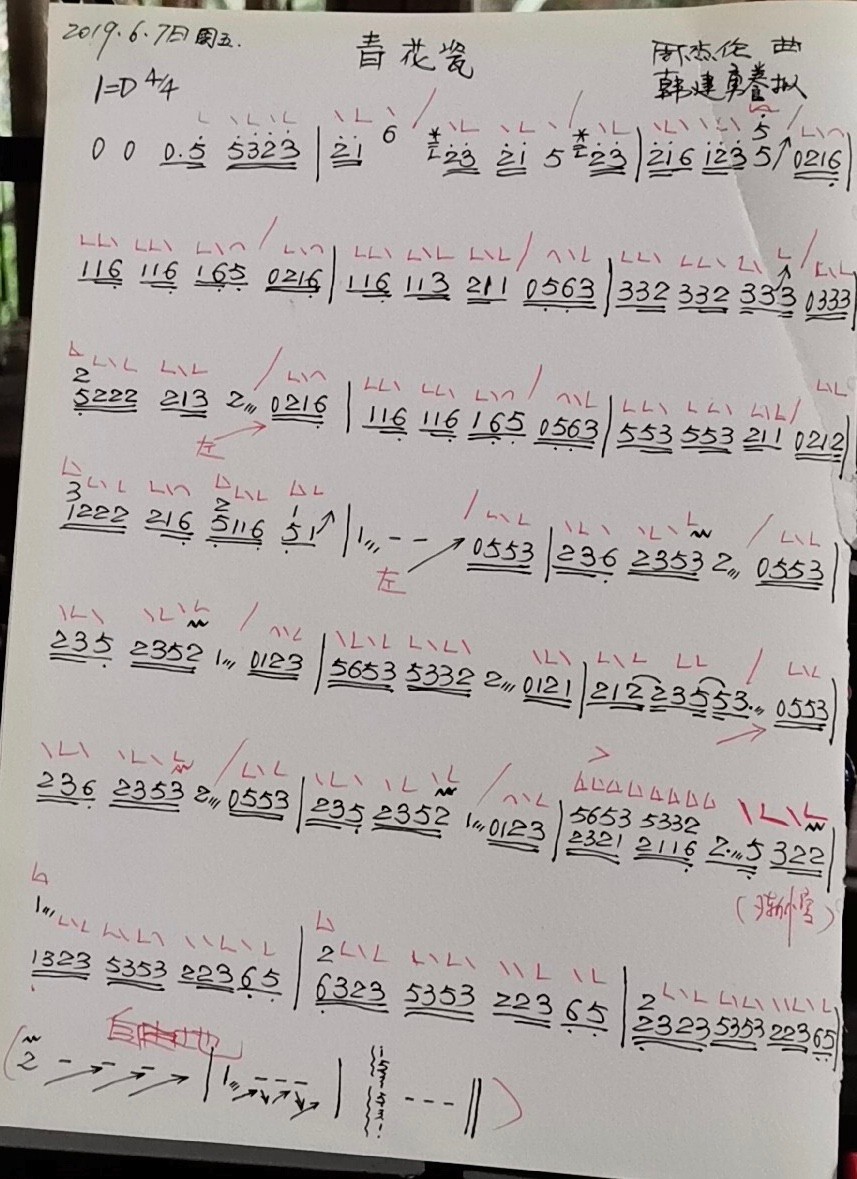 2019.6.7日周五.
青花瓷
周杰伦 曲
韩建勇 拟
1=D 4/4
0 0 0.5 5323 | 21 6 23 21 5 23 | 216 123 5 5 0216 |
116 116 165 0216 | 116 113 211 0563 | 332 332 333 0333 |
2
5222 213 2 0216 | 116 116 165 0563 | 553 553 211 0212 |
左
3 2 1
1222 216 5116 51 | 1 - - 0553 | 236 2353 2 0553 |
左
235 2352 1 0123 | 5653 5332 2 0121 | 212 235 53 0553 |
236 2353 2 0553 | 235 2352 1 0123 | 5653 5332
2321 2116 2 5 322 |
1 2 2
1323 5353 223 65 | 6323 5353 223 65 | 2323 5353 223 65 |
( 2 - - - | 1 - - - | - - - || )